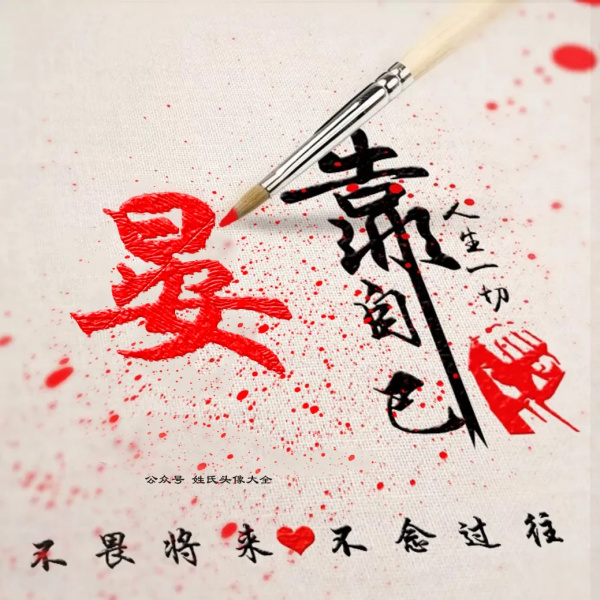 晏
靠自己
人生一切
公众号 姓氏头像大全
不畏将来 不念过往